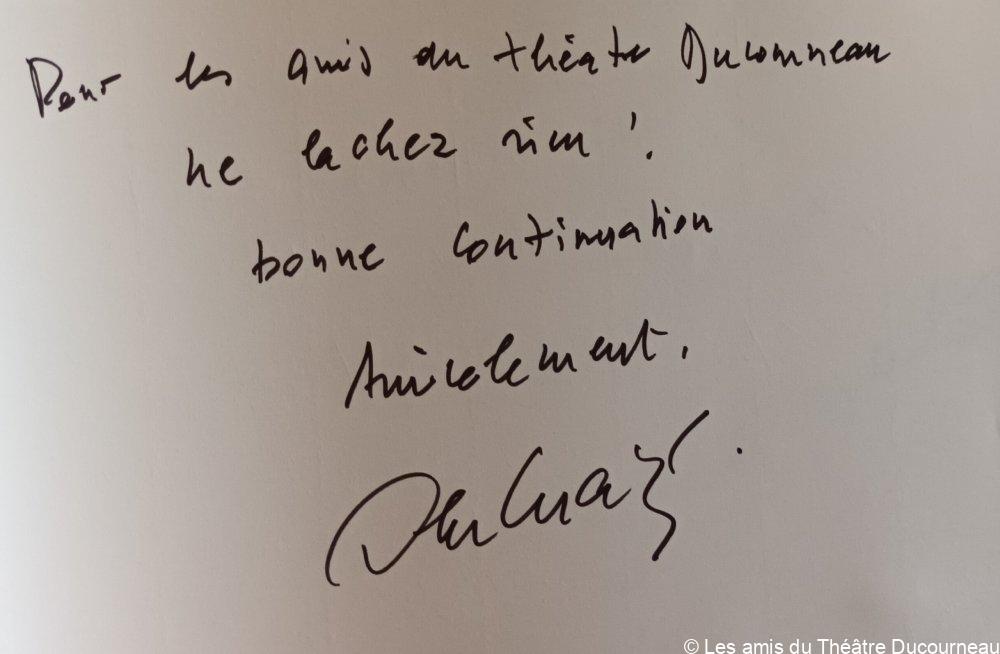 Pour les amis du théatre Ducourneau
ne lachez rien !
bonne continuation
Amicalement.
© Les amis du Théâtre Ducourneau